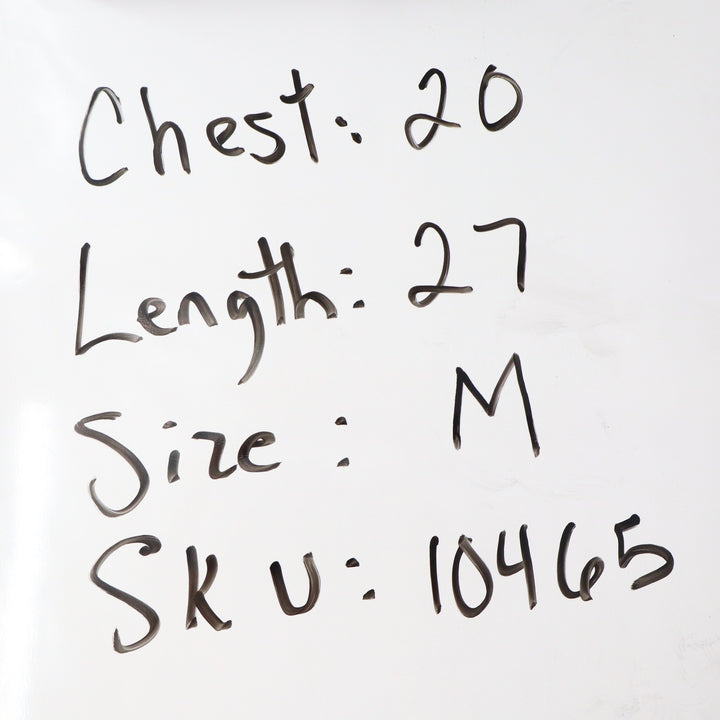 Chest: 20
Length: 27
Size: M
SKU: 10465